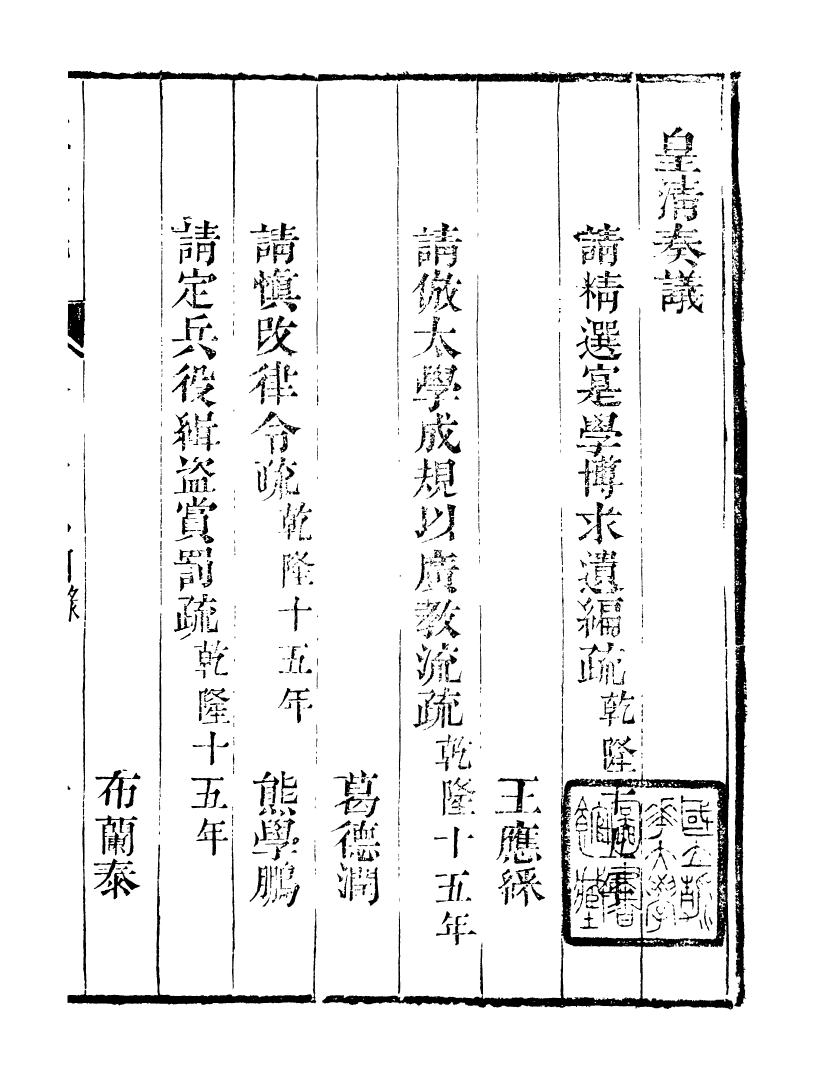 皇清奏議
請精選寔學博求遺編疏乾隆十五年
王應綵
請倣太學成規以廣教流疏乾隆十五年
葛德潤
請慎改律令疏乾隆十五年
熊學鵬
請定兵役緝盜賞罰疏乾隆十五年
布蘭泰
目錄
國立清華大學圖書館藏